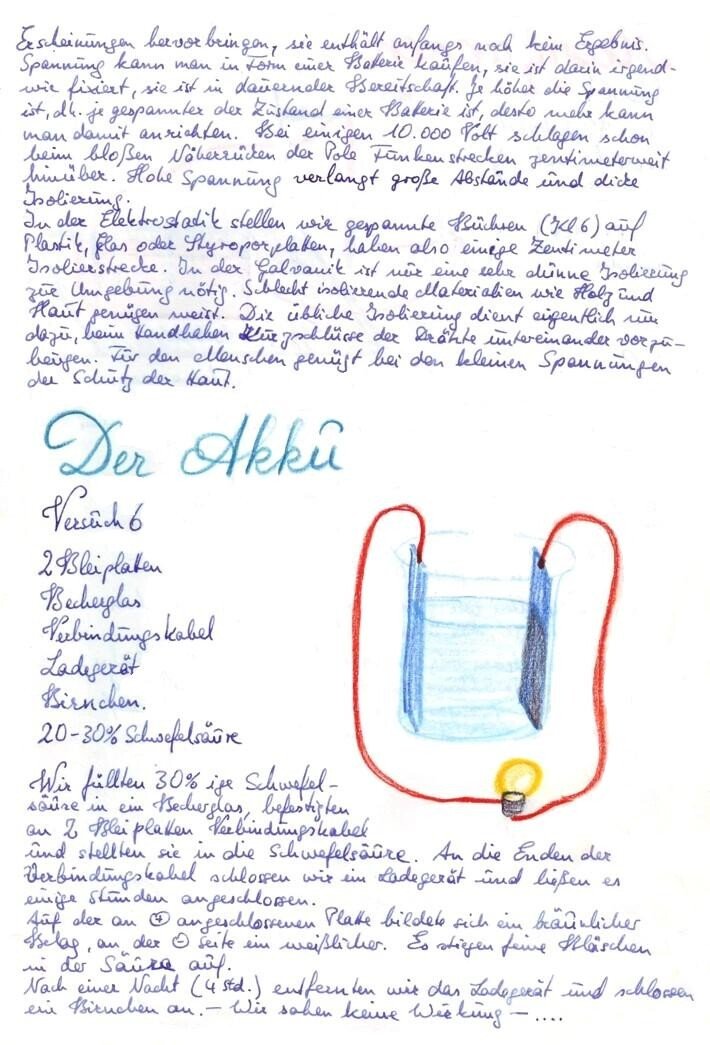 Erscheinungen hervorbringen, sie enthält anfangs noch kein Ergebnis.
Spannung kann man in Form einer Baterie kaufen, sie ist darin irgend-
wie fixiert, sie ist in dauernder Bereitschaft. Je höher die Spannung
ist, d.h. je gespannter der Zustand einer Baterie ist, desto mehr kann
man damit anrichten. Bei einigen 10.000 Volt schlagen schon
beim bloßen Näherrücken der Pole Funkenstrecken zentimeterweit
hinüber. Hohe Spannung verlangt große Abstände und dicke
Isolierung.
In der Elektrostatik stellen wir gespannte Büchsen (Kl 6) auf
Plastik, Glas oder Styroporplatten, haben also einige Zentimeter
Isolierstrecke. In der Galvanik ist nur eine sehr dünne Isolierung
zur Umgebung nötig. Schlecht isolierende Materialien wie Holz und
Haut genügen meist. Die übliche Isolierung dient eigentlich nur
dazu, beim Handhaben Kurzschlüsse der Drähte untereinander vorzu-
beugen. Für den Menschen genügt bei den kleinen Spannungen
der Schutz der Haut.
Der Akku
Versuch 6
2 Bleiplatten
Becherglas
Verbindungskabel
Ladegerät
Birnchen.
20-30% Schwefelsäure
Wir füllten 30% ige Schwefel-
säure in ein Becherglas, befestigten
an 2 Bleiplatten Verbindungskabel
und stellten sie in die Schwefelsäure. An die Enden der
Verbindungskabel schlossen wir ein Ladegerät und ließen es
einige Stunden angeschlossen.
Auf der an ⊕ angeschlossenen Platte bildete sich ein bräunlicher
Belag, an der ⊖ Seite ein weißlicher. Es stiegen feine Bläschen
in der Säure auf.
Nach einer Nacht (4 Std.) entfernten wir das Ladegerät und schlossen
ein Birnchen an. – Wir sahen keine Wirkung – ....